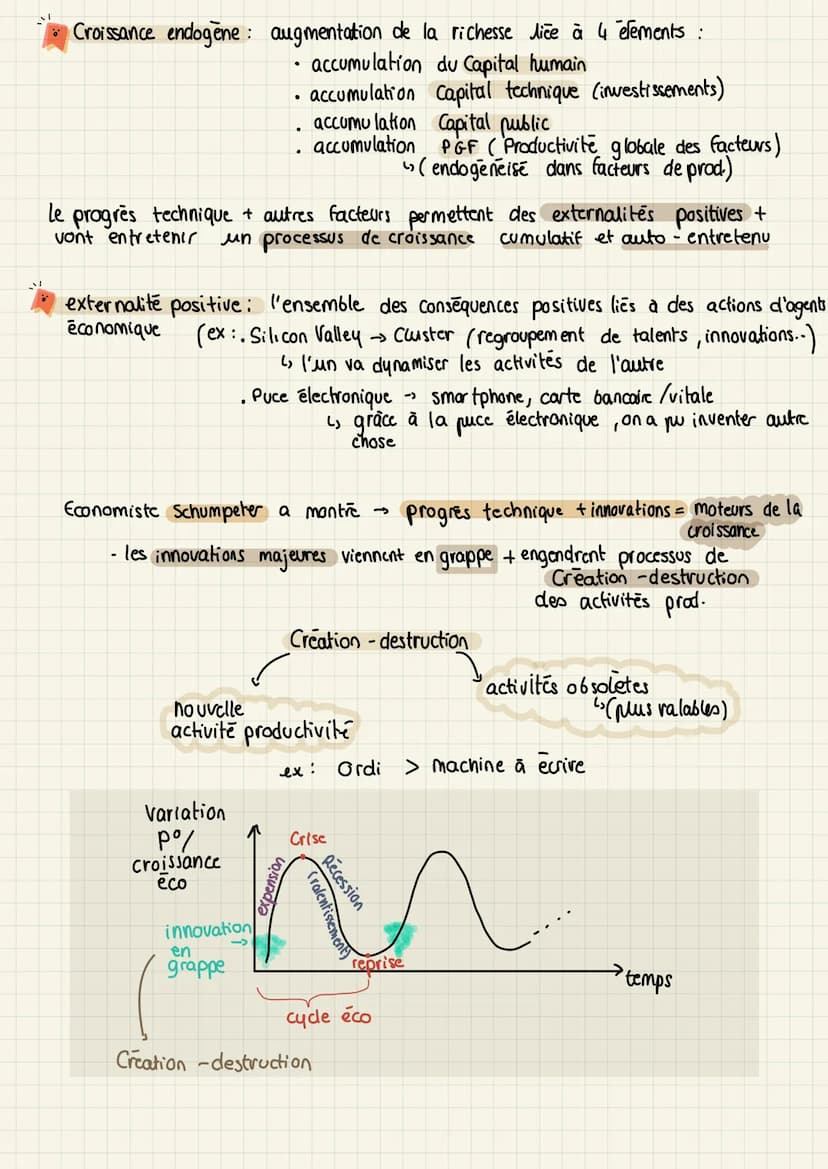 Croissance endogène : augmentation de la richesse liée à 4 éléments :
• accumulation du Capital humain
• accumulation Capital technique (investissements)
• accumulation Capital public
• accumulation PGF (Productivité globale des facteurs)
↳ (endogénéisé dans facteurs de prod.)
le progrès technique + autres facteurs permettent des externalités positives +
vont entretenir un processus de croissance cumulatif et auto-entretenu
externalité positive : l'ensemble des conséquences positives liés à des actions d'agents
économique (ex : . Silicon Valley → Cluster (regroupement de talents, innovations..)
↳ l'un va dynamiser les activités de l'autre
. Puce électronique → smartphone, carte bancaire / vitale
↳ grâce à la puce électronique, on a pu inventer autre
chose
Economiste Schumpeter a montré → progrès technique + innovations = moteurs de la
croissance
- les innovations majeures viennent en grappe + engendrent processus de
Création-destruction
des activités prod.
Création-destruction
nouvelle
activité productivité
activités obsolètes
↳ (plus valables)
ex : Ordi > machine à écrire
Variation
p°/
croissance
éco
Crise
expension
Récession
(ralentissement)
innovation
→
en
grappe
reprise
temps
cycle éco
Création-destruction